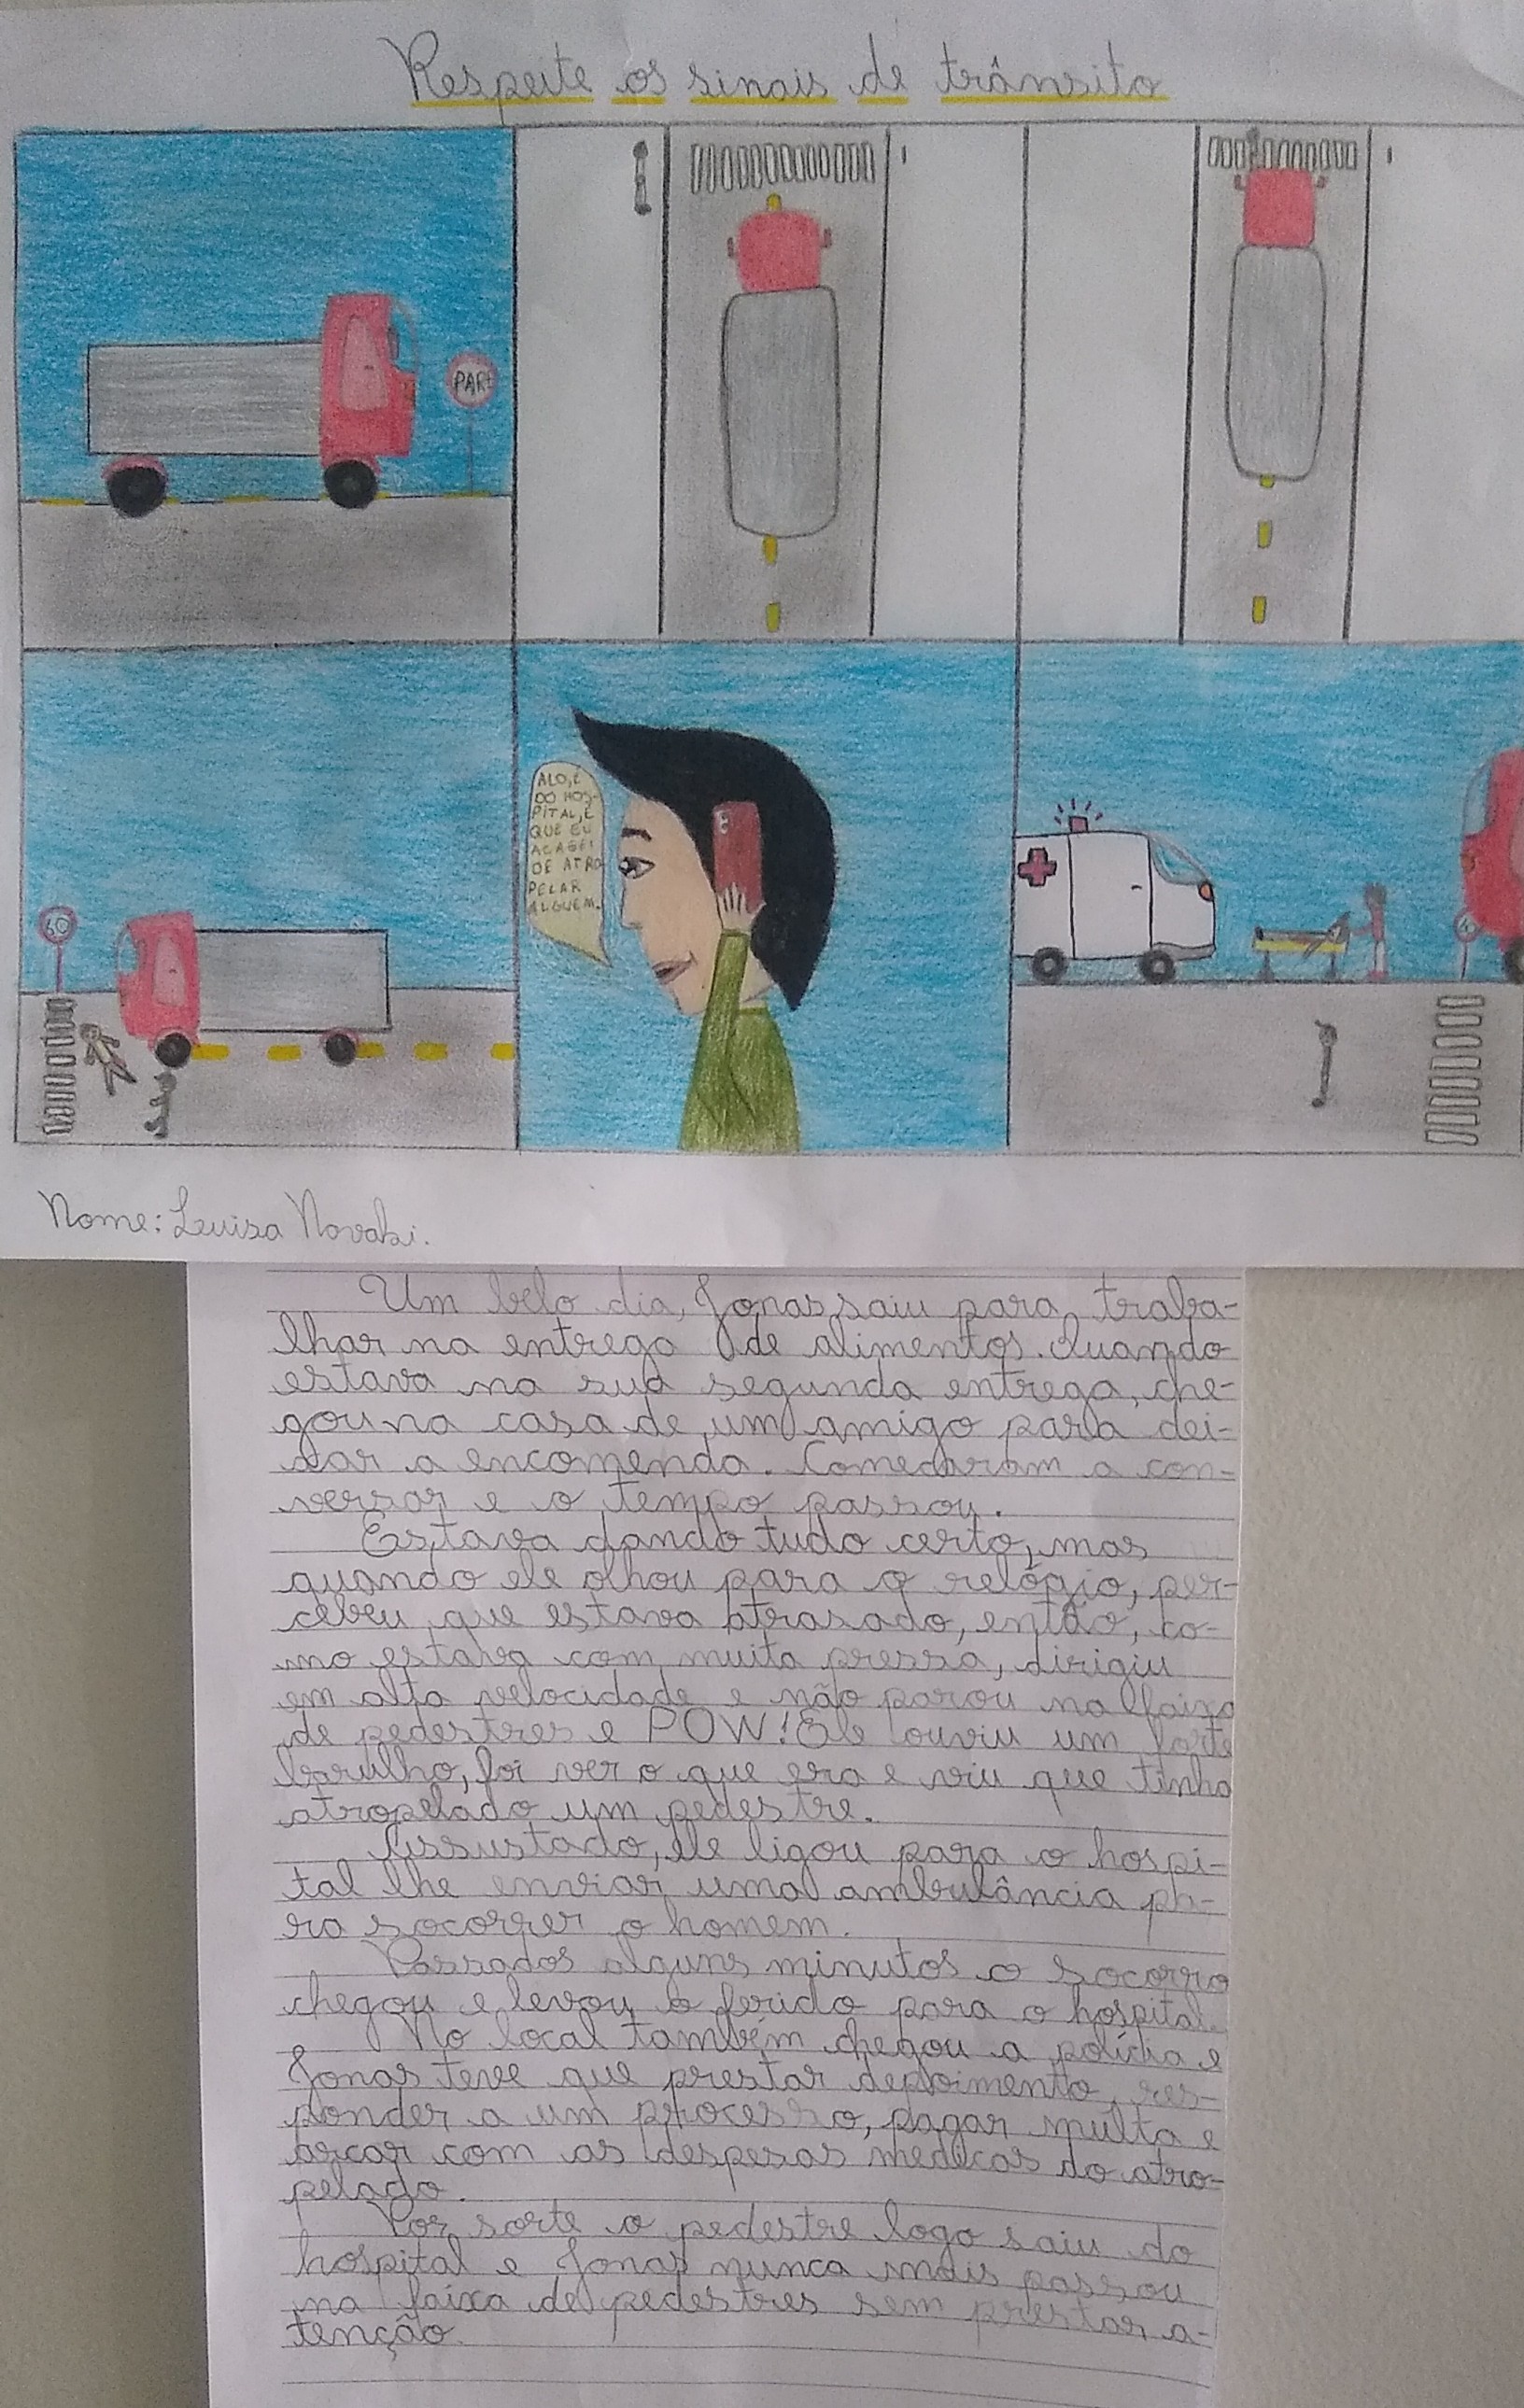 Respeite os sinais de trânsito
PARE
60
ALO, É
DO HOS-
PITAL, É
QUE EU
ACABEI
DE ATRO
PELAR
ALGUÉM.
Nome: Luisa Novaki.
Um belo dia, Jonas saiu para traba-
lhar na entrega de alimentos. Quando
estava na sua segunda entrega, che-
gou na casa de um amigo para dei-
xar a encomenda. Começaram a con-
versar e o tempo passou.
Estava dando tudo certo, mas
quando ele olhou para o relógio, per-
cebeu que estava atrasado, então, co-
mo estava com muita pressa, dirigiu
em alta velocidade e não parou na faixa
de pedestres e POW! Ele ouviu um forte
barulho, foi ver o que era e viu que tinha
atropelado um pedestre.
Assustado, ele ligou para o hospi-
tal lhe enviar uma ambulância pa-
ra socorrer o homem.
Passados alguns minutos o socorro
chegou e levou o ferido para o hospital.
No local também chegou a polícia e
Jonas teve que prestar depoimento, res-
ponder a um processo, pagar multa e
arcar com as despesas médicas do atro-
pelado.
Por sorte o pedestre logo saiu do
hospital e Jonas nunca mais passou
na faixa de pedestres sem prestar a-
tenção.